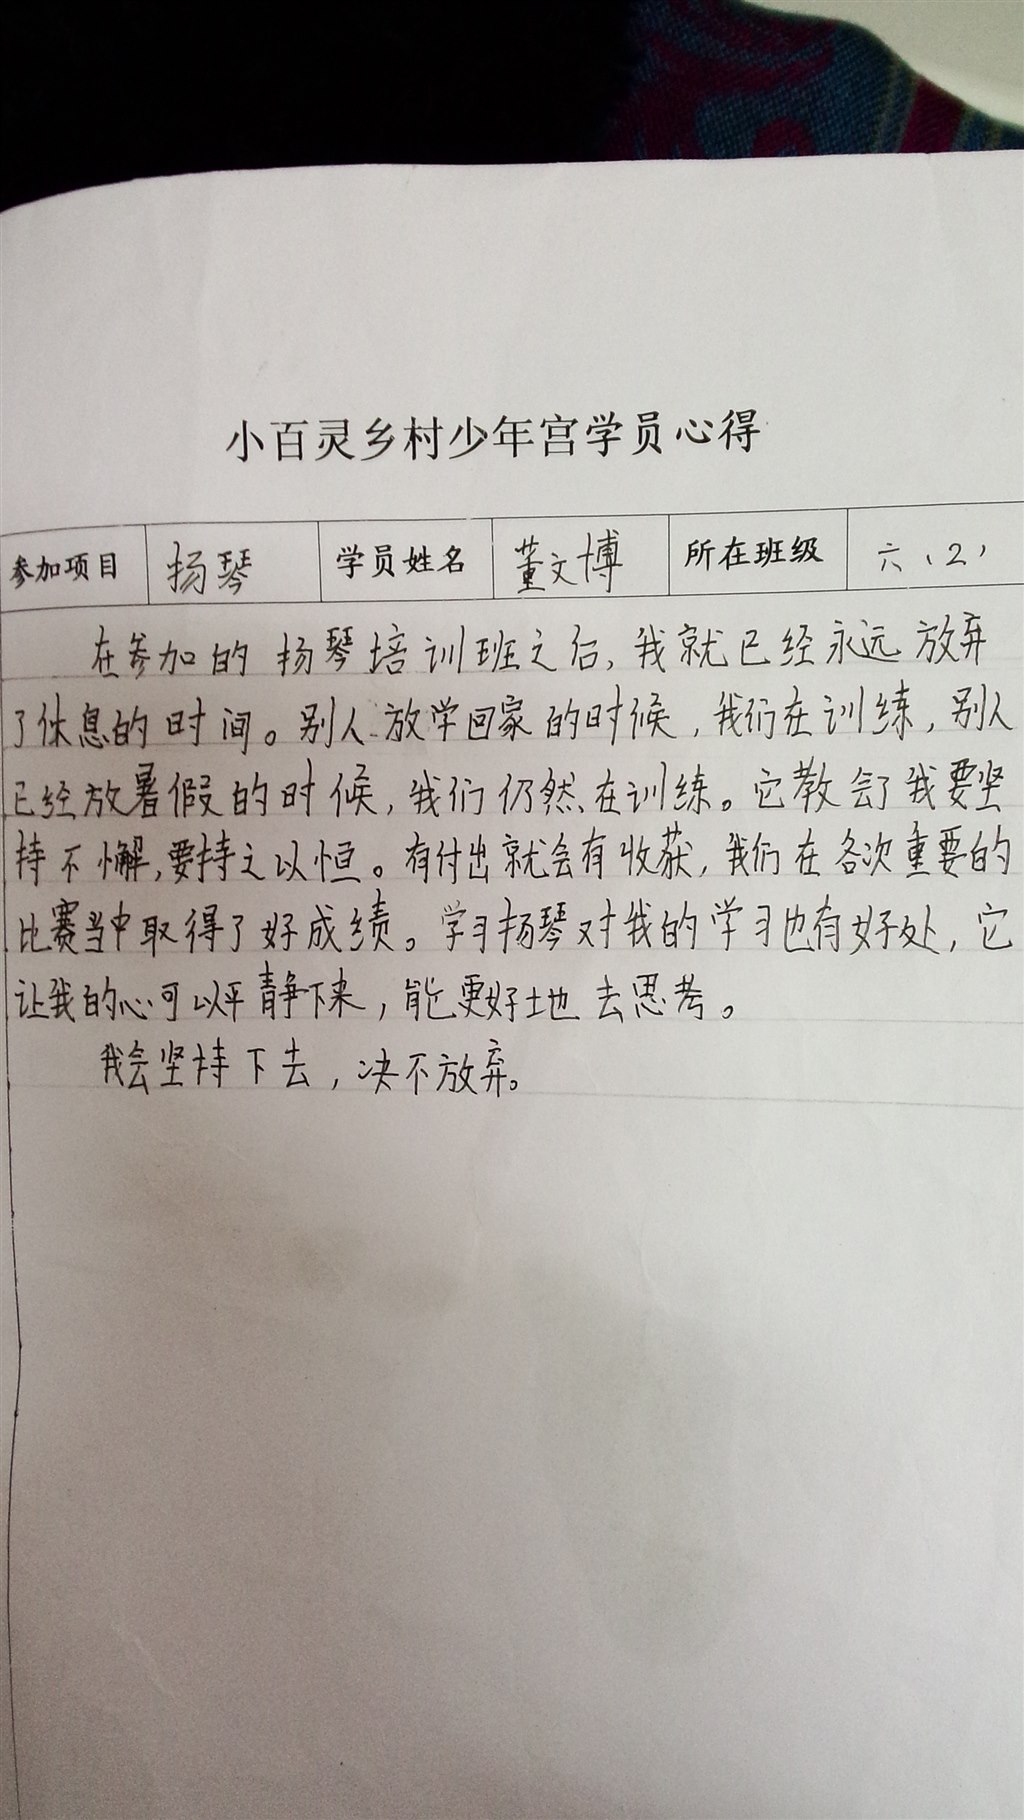 小百灵乡村少年宫学员心得
参加项目 扬琴 学员姓名 董文博 所在班级 六（2）
在参加的扬琴培训班之后，我就已经永远放弃
了休息的时间。别人放学回家的时候，我们在训练，别人
已经放暑假的时候，我们仍然在训练。它教会了我要坚
持不懈，要持之以恒。有付出就会有收获，我们在各次重要的
比赛当中取得了好成绩。学习扬琴对我的学习也有好处，它
让我的心可以平静下来，能更好土地去思考。
我会坚持下去，决不放弃。